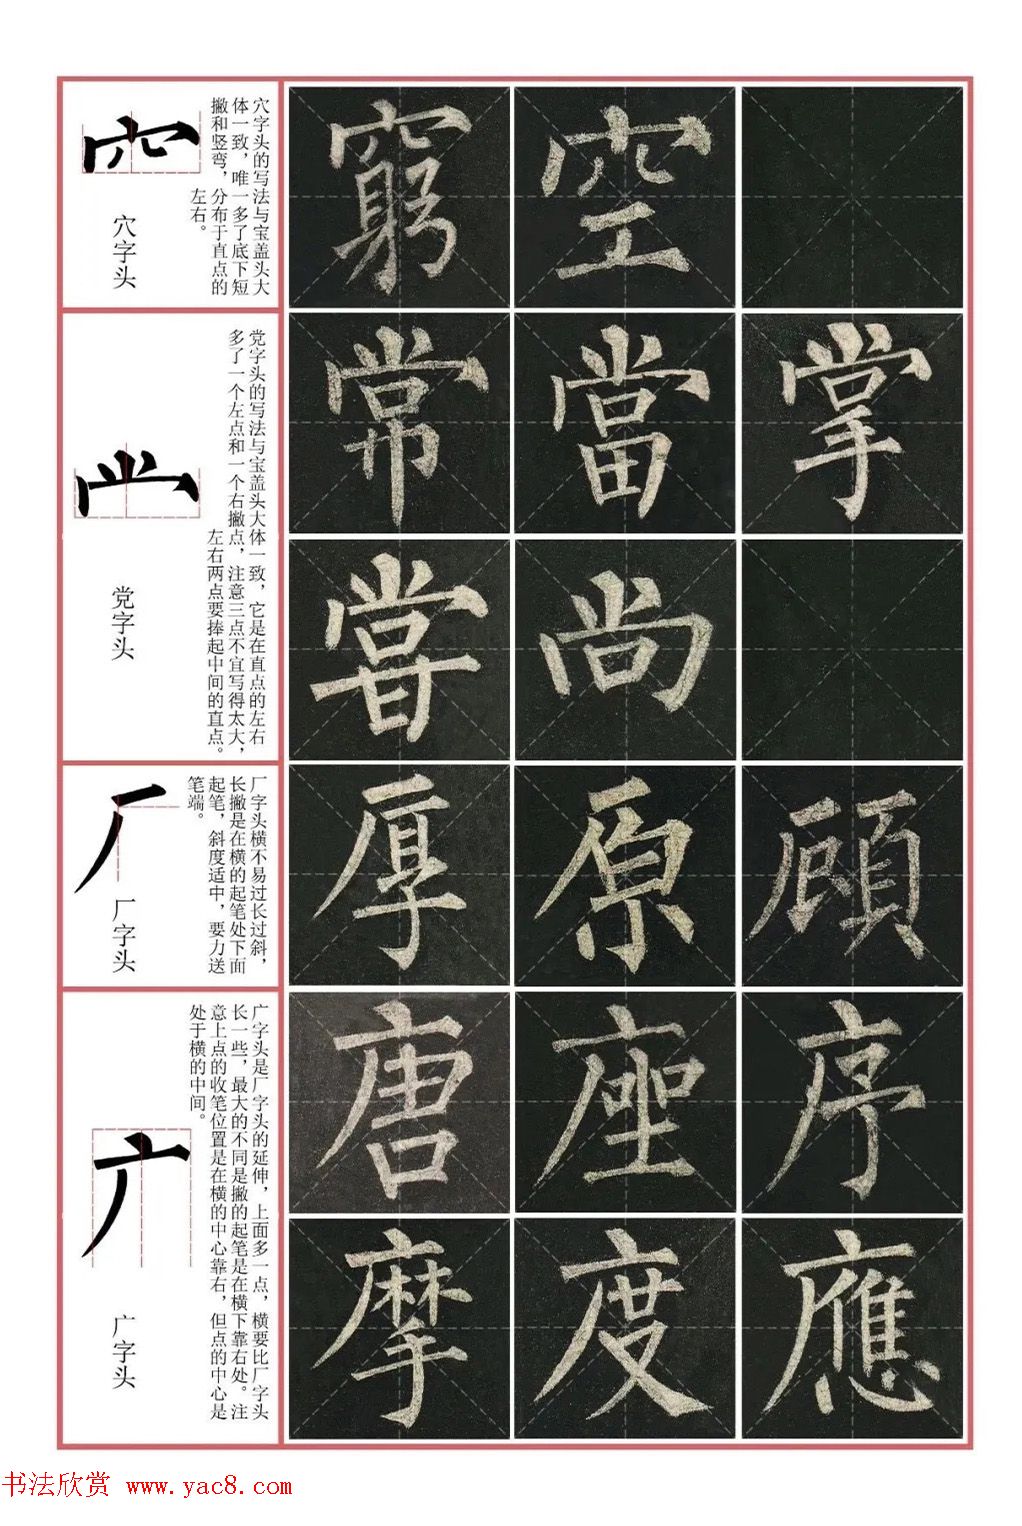 穴字头的写法与宝盖头大
体一致，唯一多了底下短
撇和竖弯，分布于直点的
左右。
穴字头
窮空
党字头的写法与宝盖头大体一致，它是在直点的左右
多了一个左点和一个右撇点，注意三点不宜写得太大，
左右两点要捧起中间的直点。
党字头
常當掌
嘗尚
厂字头横不易过长过斜，
长撇是在横的起笔处下面
起笔，斜度适中，要力送
笔端。
厂字头
厚原顧
广字头是厂字头的延伸，上面多一点，横要比厂字头
长一些，最大的不同是撇的起笔是在横下靠右处。注
意上点的收笔位置是在横的中心靠右，但点的中心是
处于横的中间。
广字头
唐座序
摩度應
书法欣赏 www.yac8.com